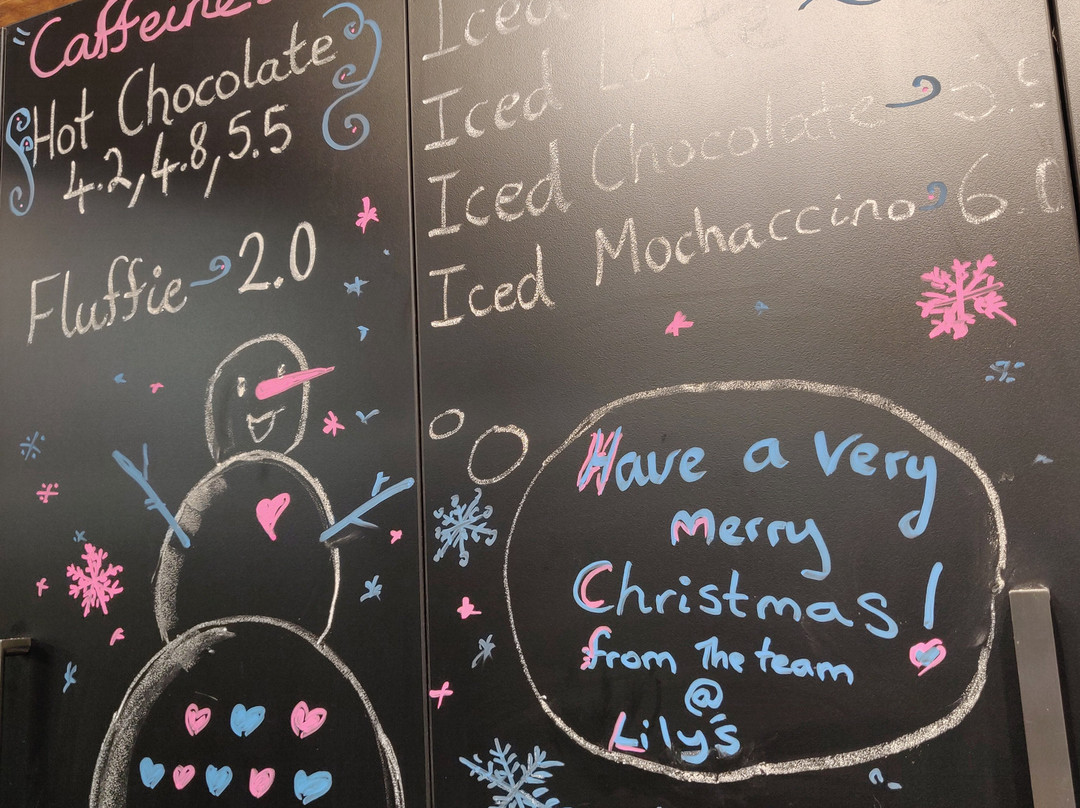 Caffeine
Hot Chocolate
4.2, 4.8, 5.5
Fluffie 2.0
Iced
Iced Latte
Iced Chocolate 5.5
Iced Mochaccino 6.0
Have a very
Merry
Christmas!
from The team
@
Lily's